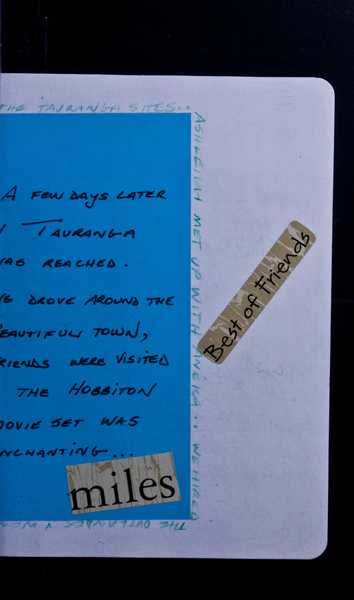 THE TAURANGA SITES..
A FEW DAYS LATER
TAURANGA
WAS REACHED.
WE DROVE AROUND THE
BEAUTIFUL TOWN,
FRIENDS WERE VISITED
THE HOBBITON
MOVIE SET WAS
ENCHANTING...
miles
ASHLEIGH MET UP WITH ANEKA.. W HIRED
THE OUTLANDER N WEN
Best of Friends